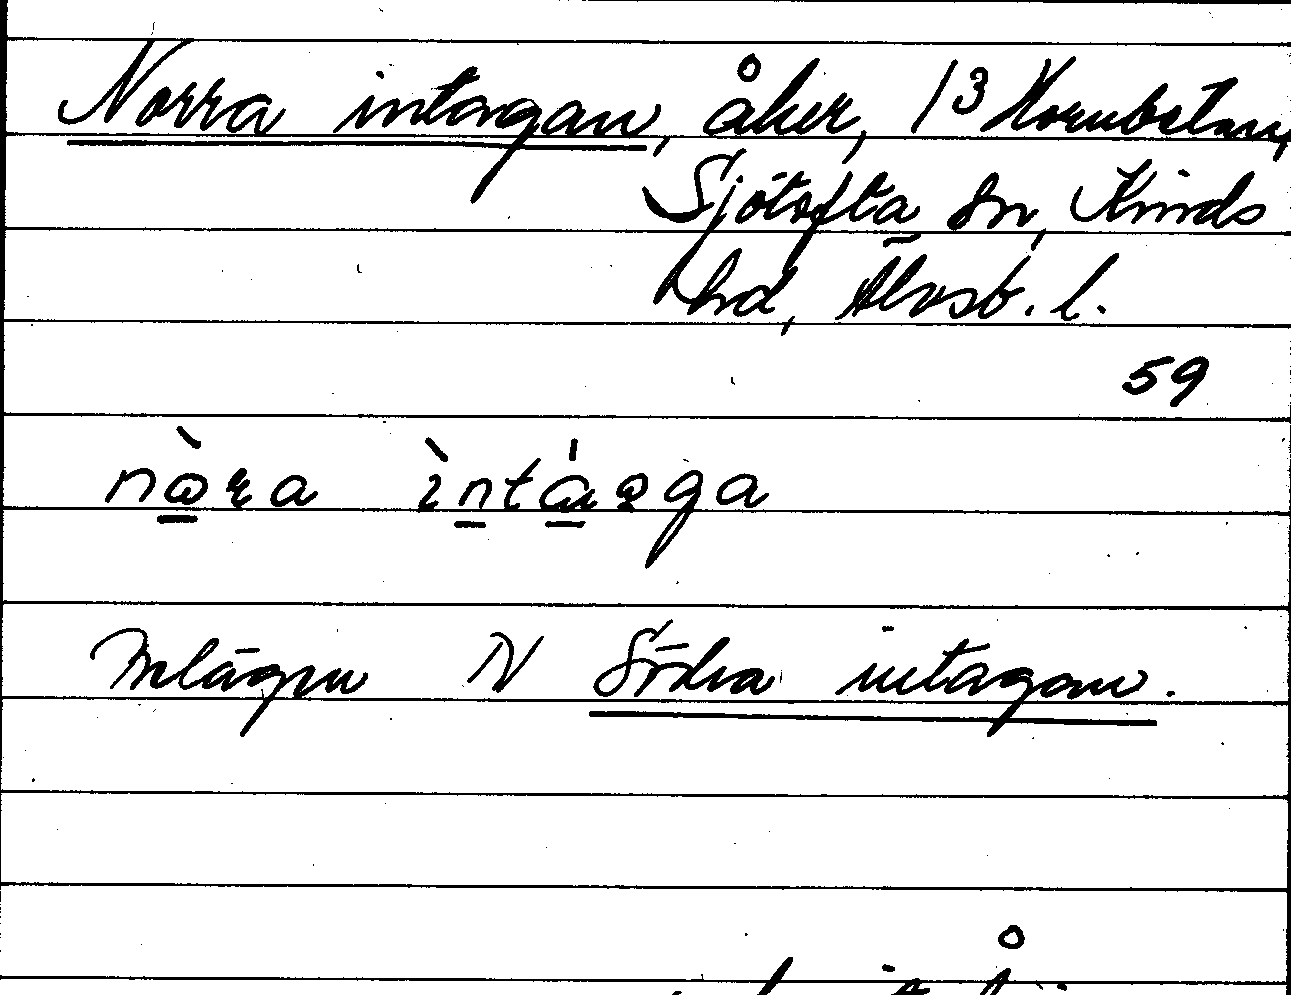 Norra intagan, åker, 13 Hornbetan,
Sjötofta sn, Kinds
hd, Älvsb. l.
59
nòra ìntáəga
Inlägen N Södra intagan.